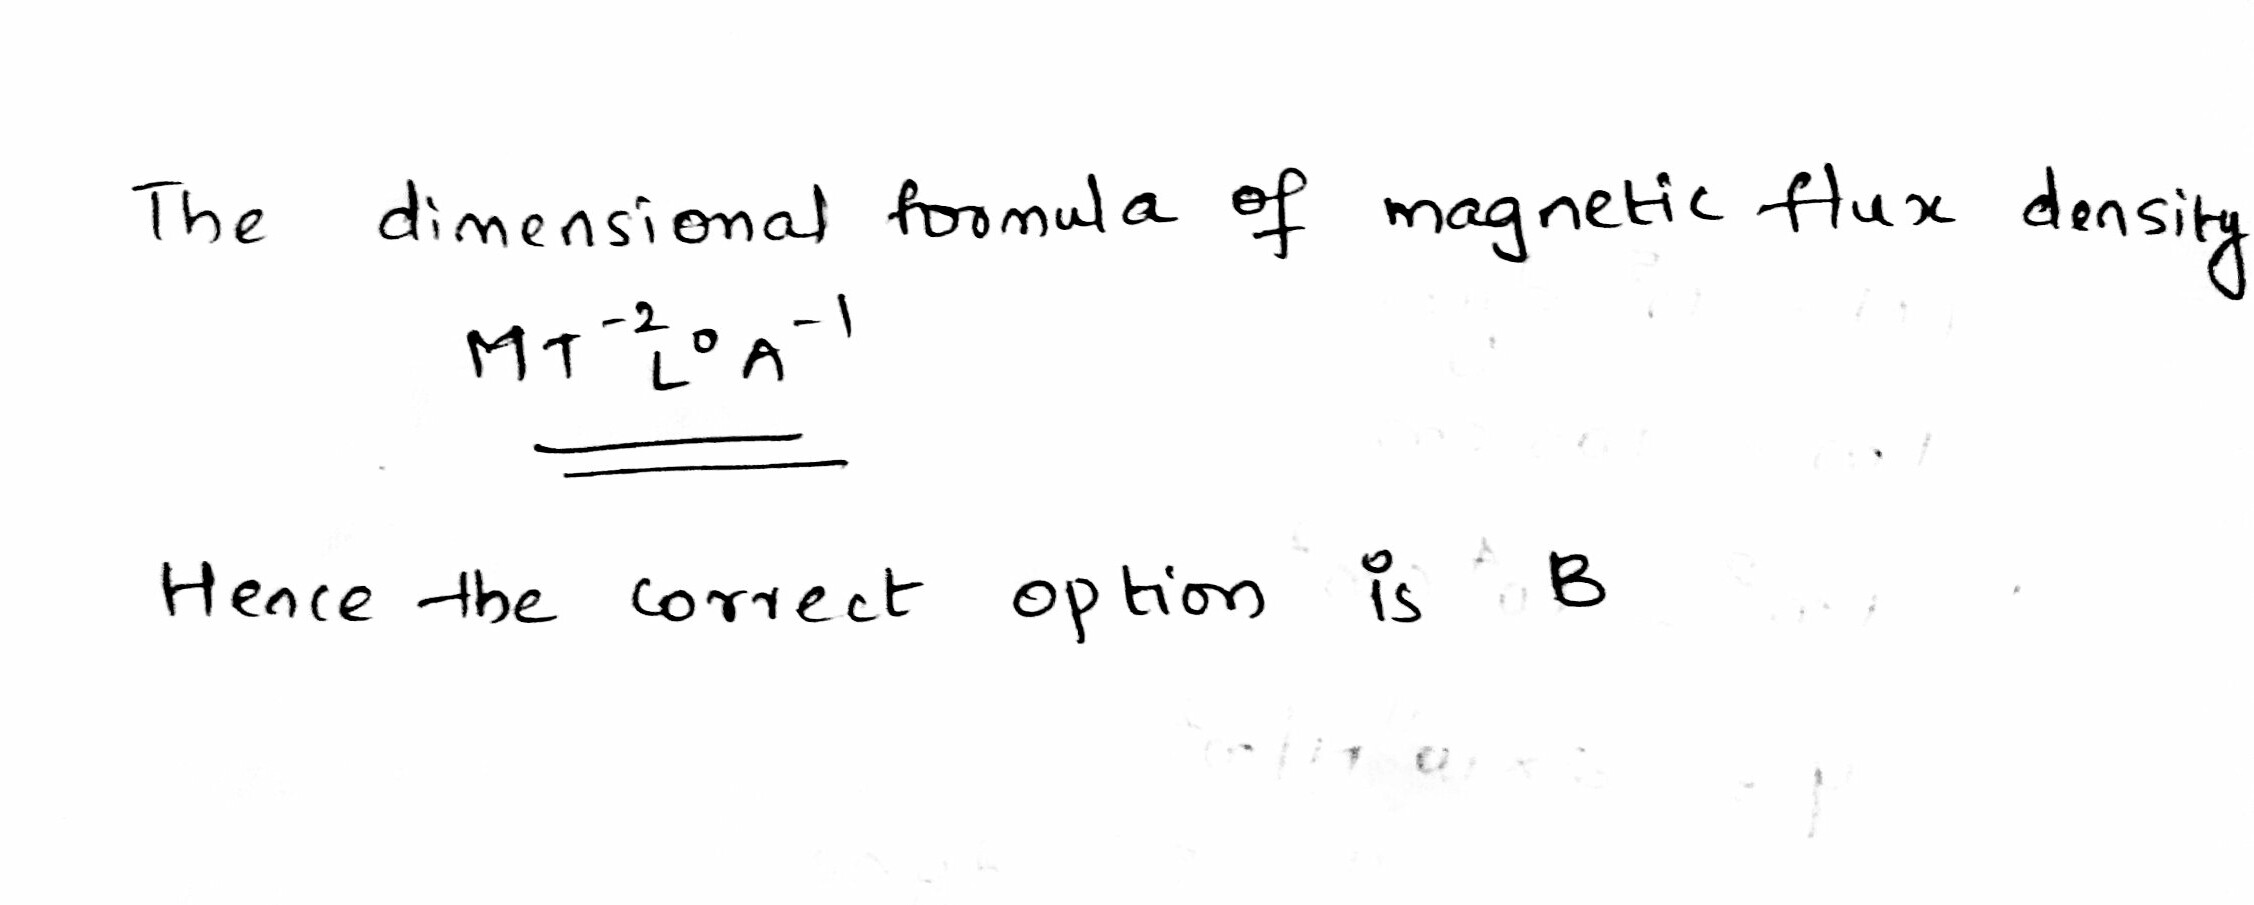 The dimensional formula of magnetic flux density
MT⁻²L⁰A⁻¹
Hence the correct option is B